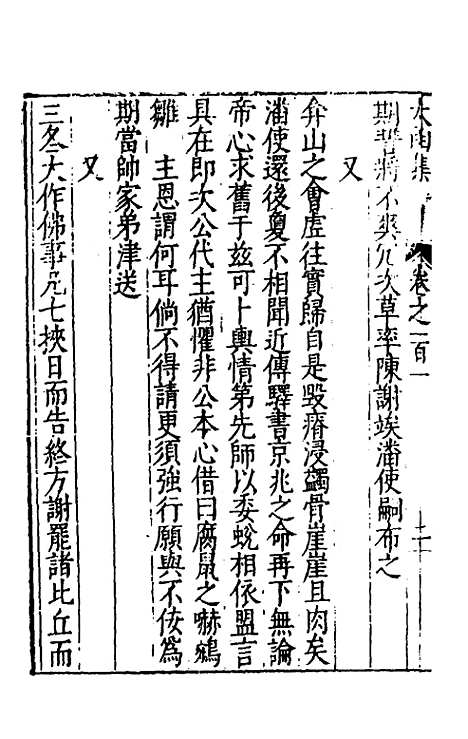 太函集 卷之一百一 十二
期誓將不爽凡次草率陳謝竢潘使嗣布之
又
弇山之會虛往實歸自是毀瘠浸蠲骨崖崖且肉矣
潘使還後夐不相聞近傳驛書京兆之命再下無論
帝心求舊于兹可卜輿情第先師以委蛻相依盟言
具在即次公代主猶懼非公本心借曰腐鼠之嚇鵷
雛 主恩謂何耳倘不得請更須強行願與不佞為
期當帥家弟津送
又
三冬大作佛事凡七挾日而告終方謝罷諸比丘而